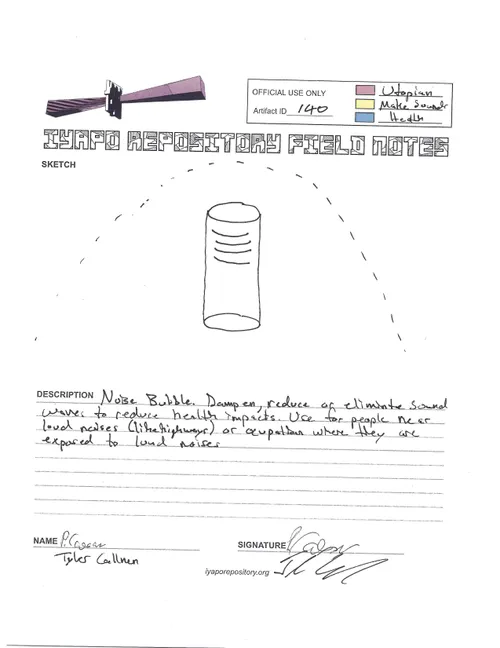 OFFICIAL USE ONLY
Artifact ID 140
Utopian
Make Sound
Health
IYAPO REPOSITORY FIELD NOTES
SKETCH
DESCRIPTION Noise Bubble. Dampen, reduce or eliminate sound
waves to reduce health impacts. Use for people near
loud noises (like highways) or ocupation where they are
exposed to loud noises
NAME
Tyler
SIGNATURE
iyaporepository.org